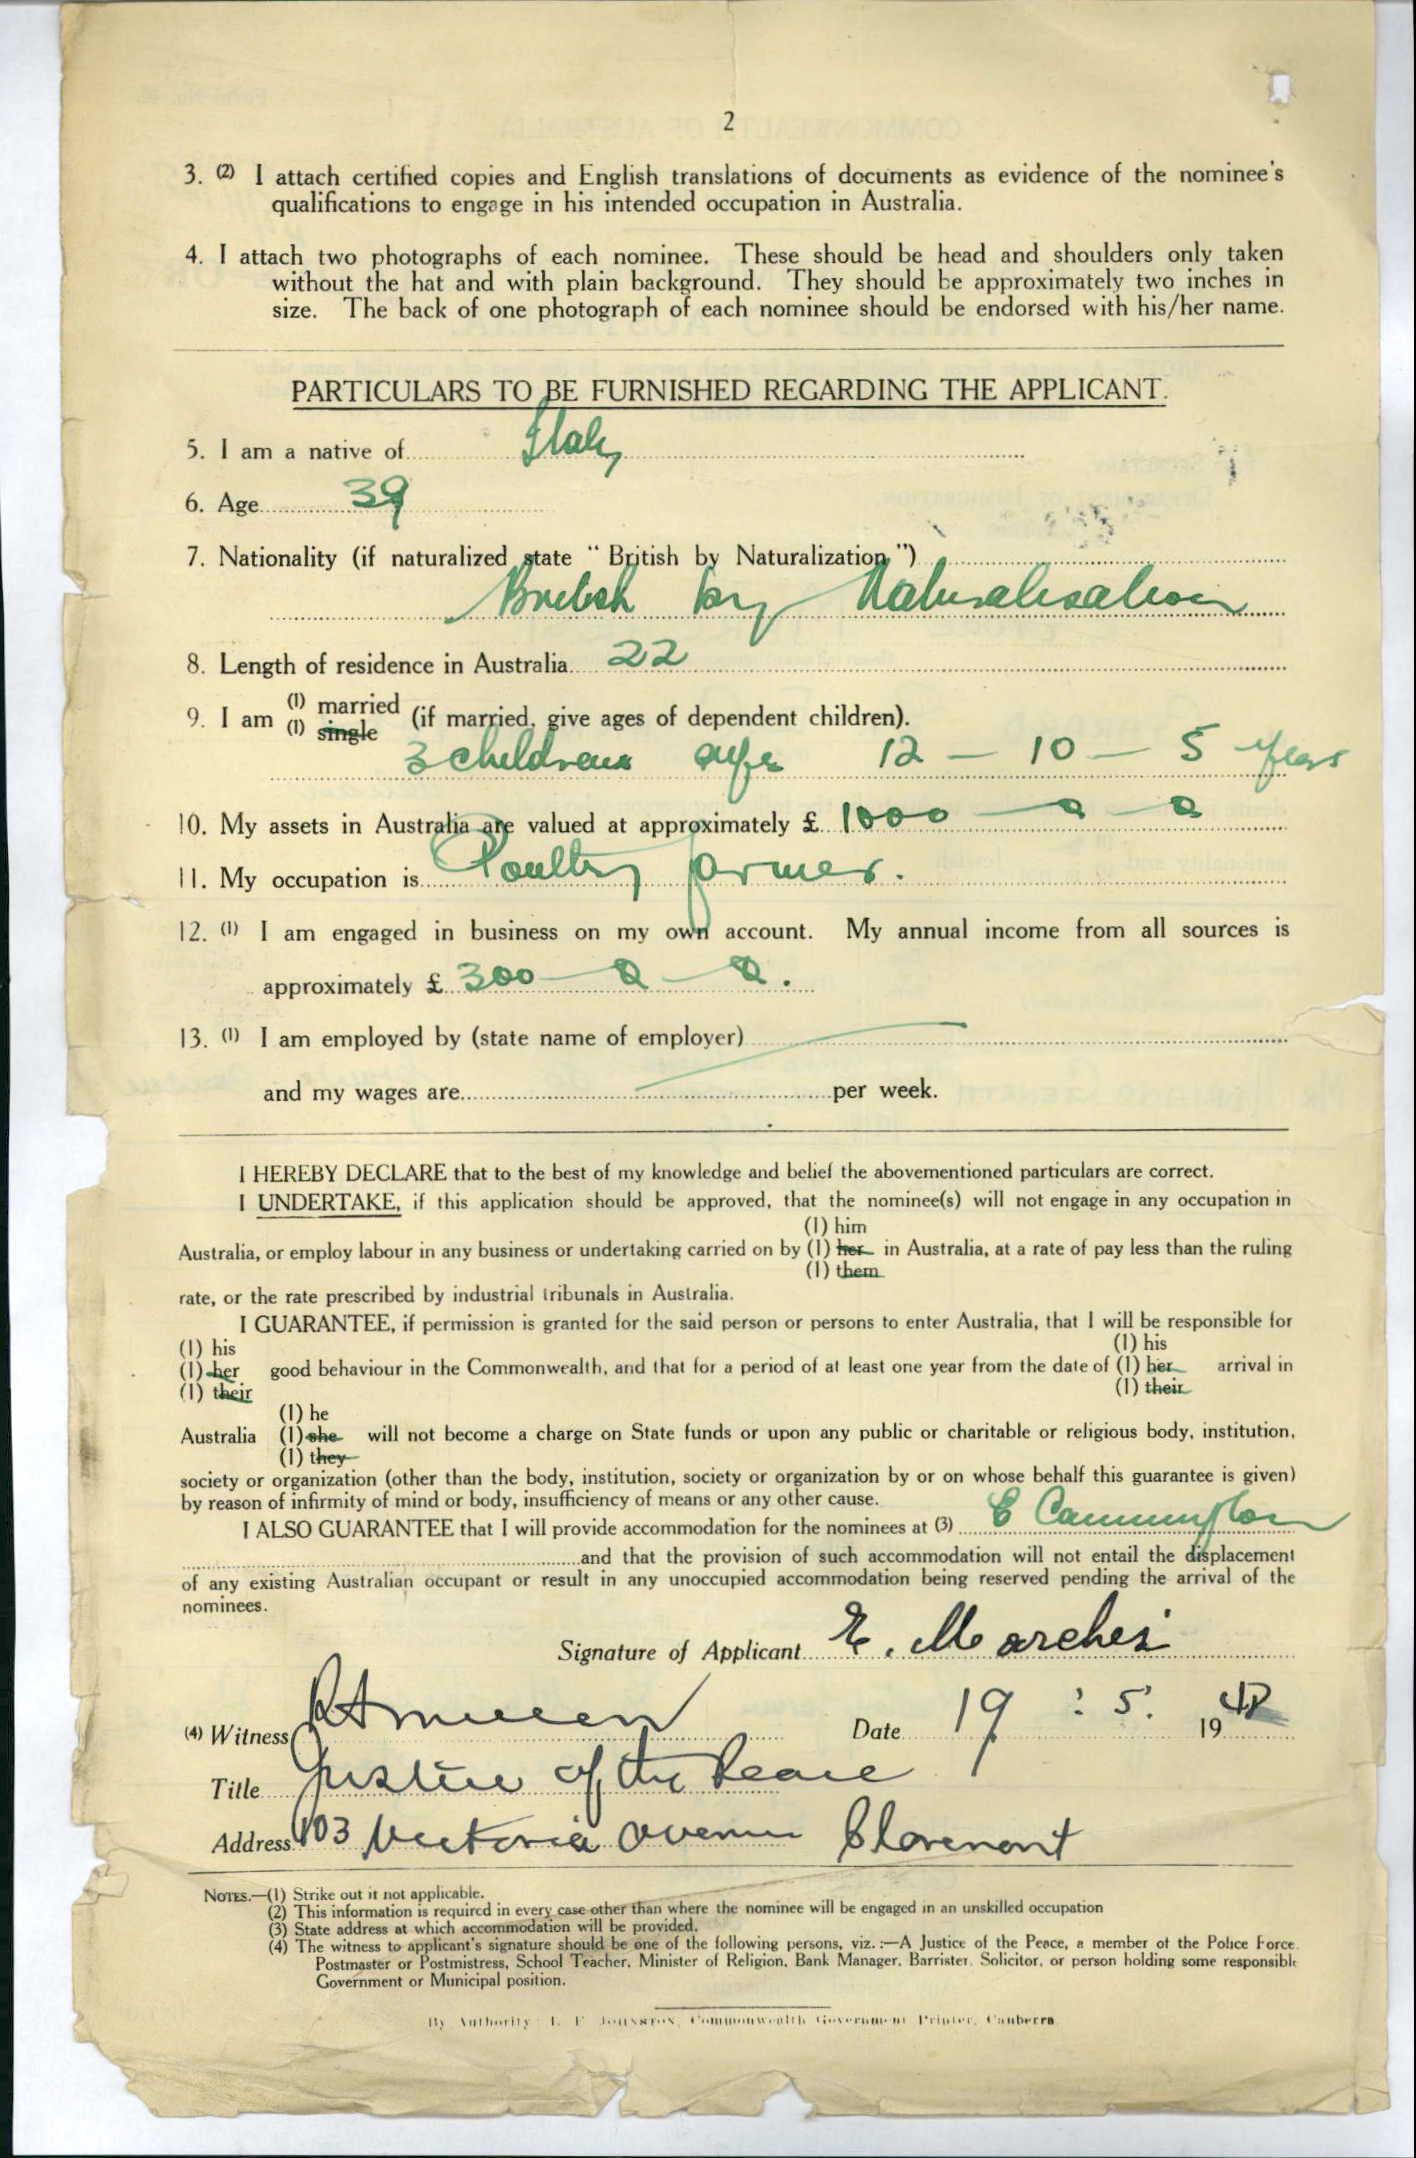 2
3. (2) I attach certified copies and English translations of documents as evidence of the nominee's
qualifications to engage in his intended occupation in Australia.
4. I attach two photographs of each nominee. These should be head and shoulders only taken
without the hat and with plain background. They should be approximately two inches in
size. The back of one photograph of each nominee should be endorsed with his/her name.
PARTICULARS TO BE FURNISHED REGARDING THE APPLICANT.
5. I am a native of Italy
6. Age 39
7. Nationality (if naturalized state "British by Naturalization")
British by Naturalisation
8. Length of residence in Australia 22
(1) married
9. I am (1) single (if married, give ages of dependent children).
3 childrens age 12 - 10 - 5 years
10. My assets in Australia are valued at approximately £ 1000 - 0 - 0
11. My occupation is Poultry farmer.
12. (1) I am engaged in business on my own account. My annual income from all sources is
approximately £ 300 - 0 - 0.
13. (1) I am employed by (state name of employer)
and my wages are per week.
I HEREBY DECLARE that to the best of my knowledge and belief the abovementioned particulars are correct.
I UNDERTAKE, if this application should be approved, that the nominee(s) will not engage in any occupation in
(1) him
Australia, or employ labour in any business or undertaking carried on by (1) her in Australia, at a rate of pay less than the ruling
(1) them
rate, or the rate prescribed by industrial tribunals in Australia.
I GUARANTEE, if permission is granted for the said person or persons to enter Australia, that I will be responsible for
(1) his (1) his
(1) her good behaviour in the Commonwealth, and that for a period of at least one year from the date of (1) her arrival in
(1) their (1) their
(1) he
Australia (1) she will not become a charge on State funds or upon any public or charitable or religious body, institution,
(1) they
society or organization (other than the body, institution, society or organization by or on whose behalf this guarantee is given)
by reason of infirmity of mind or body, insufficiency of means or any other cause.
I ALSO GUARANTEE that I will provide accommodation for the nominees at (3) E Cannington
and that the provision of such accommodation will not entail the displacement
of any existing Australian occupant or result in any unoccupied accommodation being reserved pending the arrival of the
nominees.
Signature of Applicant E. Marchesi
(4) Witness Date 19 : 5. 1948
Title Justice of the Peace
Address 103 Victoria Avenue Claremont
NOTES.—(1) Strike out if not applicable.
(2) This information is required in every case other than where the nominee will be engaged in an unskilled occupation
(3) State address at which accommodation will be provided.
(4) The witness to applicant's signature should be one of the following persons, viz.:—A Justice of the Peace, a member of the Police Force.
Postmaster or Postmistress, School Teacher, Minister of Religion, Bank Manager, Barrister, Solicitor, or person holding some responsible
Government or Municipal position.
By Authority: L. F. JOHNSTON, Commonwealth Government Printer, Canberra